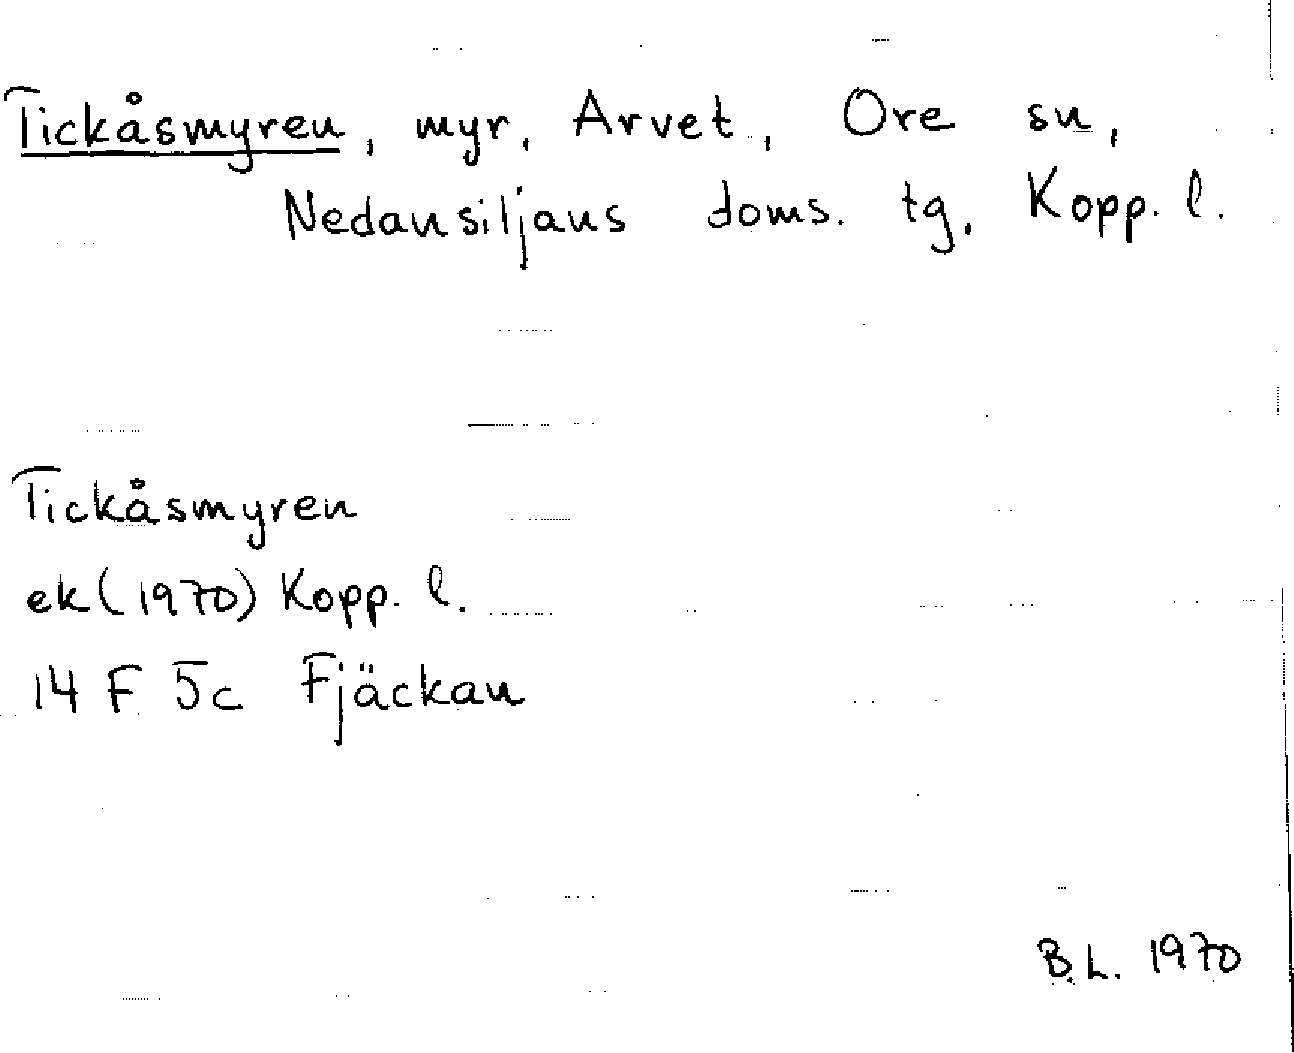 Tickåsmyren, myr, Arvet, Ore sn,
Nedansiljans doms. tg, Kopp. l.
Tickåsmyren
ek (1970) Kopp. l.
14 F 5c Fjäckan
B.L. 1970